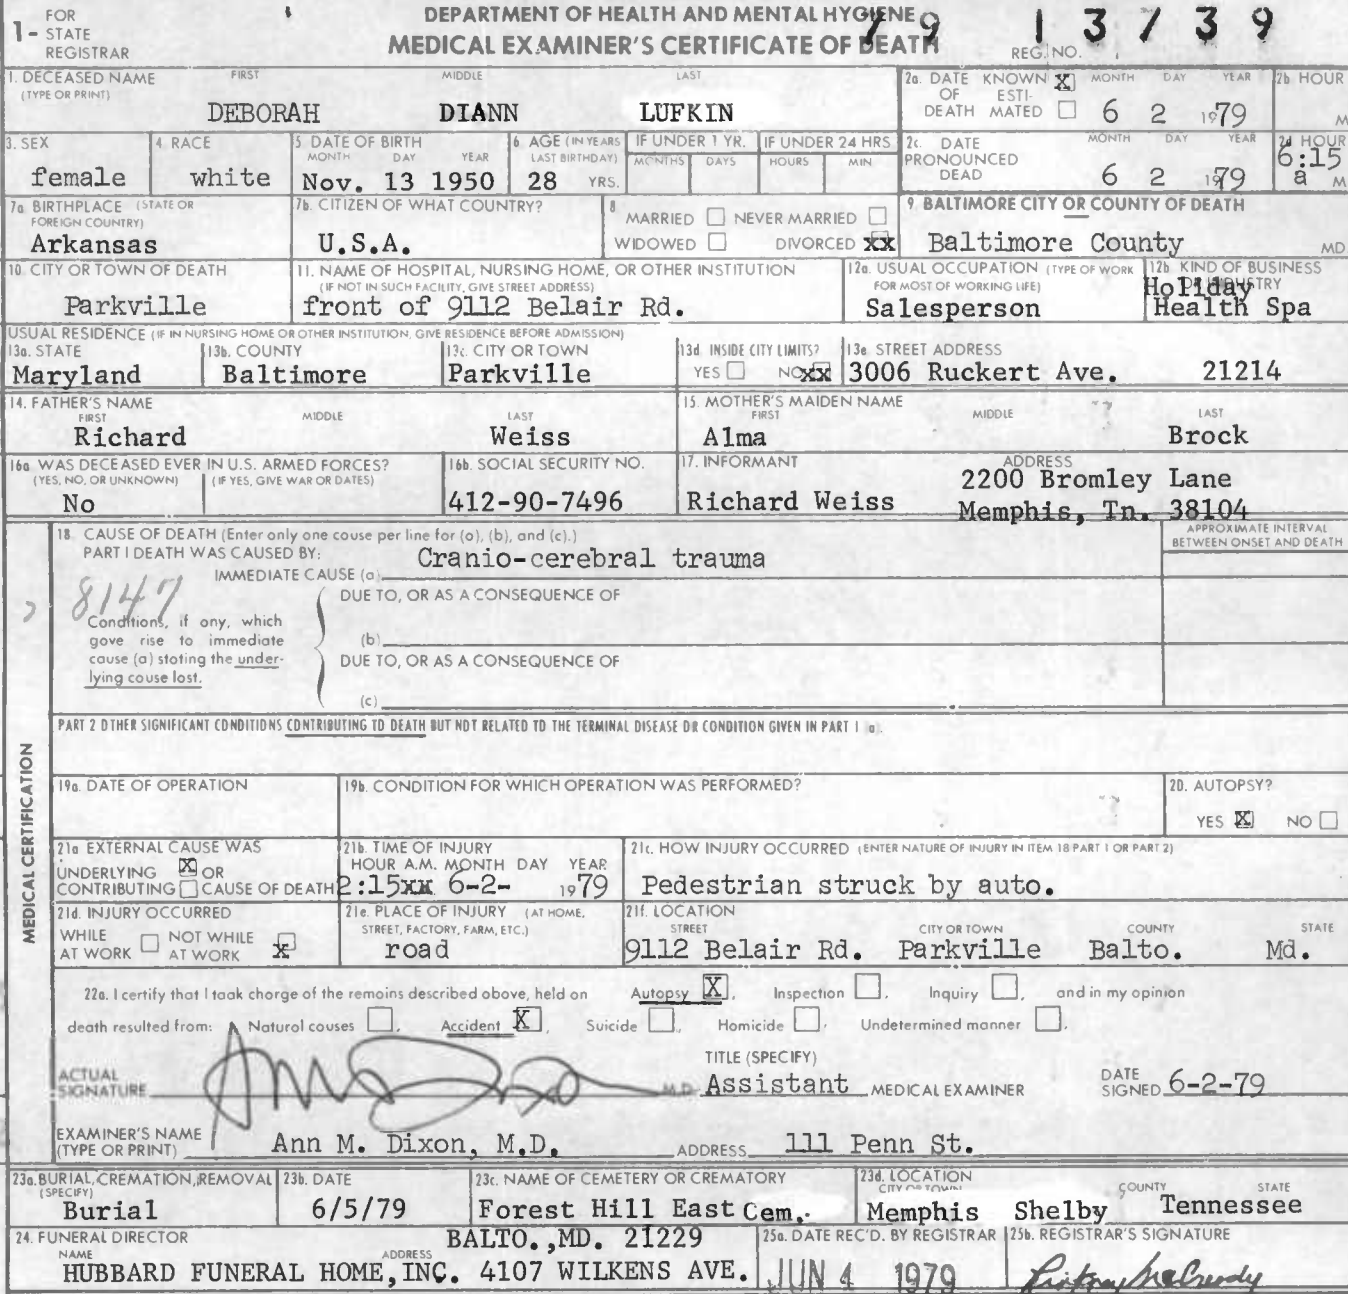 FOR
1- STATE
REGISTRAR
DEPARTMENT OF HEALTH AND MENTAL HYGIENE
MEDICAL EXAMINER'S CERTIFICATE OF DEATH
79 13739
REG. NO.
1. DECEASED NAME FIRST MIDDLE LAST
(TYPE OR PRINT)
DEBORAH DIANN LUFKIN
2a. DATE KNOWN X MONTH DAY YEAR 2b HOUR
OF ESTI-
DEATH MATED 6 2 1979 M
3. SEX 4. RACE 5. DATE OF BIRTH 6. AGE (IN YEARS IF UNDER 1 YR. IF UNDER 24 HRS
MONTH DAY YEAR LAST BIRTHDAY) MONTHS DAYS HOURS MIN
female white Nov. 13 1950 28 YRS.
2c. DATE MONTH DAY YEAR 2d HOUR
PRONOUNCED 6:15
DEAD 6 2 1979 a M
7a. BIRTHPLACE (STATE OR
FOREIGN COUNTRY)
Arkansas
7b. CITIZEN OF WHAT COUNTRY?
U.S.A.
8 MARRIED NEVER MARRIED
WIDOWED DIVORCED XX
9. BALTIMORE CITY OR COUNTY OF DEATH
Baltimore County MD
10. CITY OR TOWN OF DEATH
Parkville
11. NAME OF HOSPITAL, NURSING HOME, OR OTHER INSTITUTION
(IF NOT IN SUCH FACILITY, GIVE STREET ADDRESS)
front of 9112 Belair Rd.
12a. USUAL OCCUPATION (TYPE OF WORK
FOR MOST OF WORKING LIFE)
Salesperson
12b. KIND OF BUSINESS
OR INDUSTRY
Holiday
Health Spa
USUAL RESIDENCE (IF IN NURSING HOME OR OTHER INSTITUTION, GIVE RESIDENCE BEFORE ADMISSION)
13a. STATE 13b. COUNTY 13c. CITY OR TOWN 13d. INSIDE CITY LIMITS? 13e. STREET ADDRESS
Maryland Baltimore Parkville YES NO XX 3006 Ruckert Ave. 21214
14. FATHER'S NAME
FIRST MIDDLE LAST
Richard Weiss
15. MOTHER'S MAIDEN NAME
FIRST MIDDLE LAST
Alma Brock
16a. WAS DECEASED EVER IN U.S. ARMED FORCES?
(YES, NO, OR UNKNOWN) (IF YES, GIVE WAR OR DATES)
No
16b. SOCIAL SECURITY NO.
412-90-7496
17. INFORMANT ADDRESS
Richard Weiss 2200 Bromley Lane
Memphis, Tn. 38104
18. CAUSE OF DEATH (Enter only one cause per line for (a), (b), and (c).)
PART I DEATH WAS CAUSED BY:
IMMEDIATE CAUSE (a) Cranio-cerebral trauma
APPROXIMATE INTERVAL
BETWEEN ONSET AND DEATH
8147
DUE TO, OR AS A CONSEQUENCE OF
Conditions, if any, which
gave rise to immediate
cause (a) stating the under-
lying cause last.
(b)
DUE TO, OR AS A CONSEQUENCE OF
(c)
PART 2 OTHER SIGNIFICANT CONDITIONS CONTRIBUTING TO DEATH BUT NOT RELATED TO THE TERMINAL DISEASE OR CONDITION GIVEN IN PART I a.
MEDICAL CERTIFICATION
19a. DATE OF OPERATION
19b. CONDITION FOR WHICH OPERATION WAS PERFORMED?
20. AUTOPSY?
YES X NO
21a EXTERNAL CAUSE WAS
UNDERLYING X OR
CONTRIBUTING CAUSE OF DEATH
21b. TIME OF INJURY
HOUR A.M. MONTH DAY YEAR
2:15xx 6-2- 1979
21c. HOW INJURY OCCURRED (ENTER NATURE OF INJURY IN ITEM 18 PART 1 OR PART 2)
Pedestrian struck by auto.
21d. INJURY OCCURRED
WHILE NOT WHILE
AT WORK AT WORK X
21e. PLACE OF INJURY (AT HOME,
STREET, FACTORY, FARM, ETC.)
road
21f. LOCATION
STREET CITY OR TOWN COUNTY STATE
9112 Belair Rd. Parkville Balto. Md.
22a. I certify that I took charge of the remains described above, held on Autopsy X, Inspection , Inquiry , and in my opinion
death resulted from: Natural causes , Accident X, Suicide , Homicide , Undetermined manner .
TITLE (SPECIFY)
ACTUAL
SIGNATURE M.D. Assistant MEDICAL EXAMINER
DATE
SIGNED 6-2-79
EXAMINER'S NAME
(TYPE OR PRINT) Ann M. Dixon, M.D. ADDRESS 111 Penn St.
23a. BURIAL, CREMATION, REMOVAL
(SPECIFY)
Burial
23b. DATE
6/5/79
23c. NAME OF CEMETERY OR CREMATORY
Forest Hill East Cem.
23d. LOCATION
CITY OR TOWN COUNTY STATE
Memphis Shelby Tennessee
24. FUNERAL DIRECTOR BALTO.,MD. 21229
NAME ADDRESS
HUBBARD FUNERAL HOME, INC. 4107 WILKENS AVE.
25a. DATE REC'D. BY REGISTRAR
JUN 4 1979
25b. REGISTRAR'S SIGNATURE